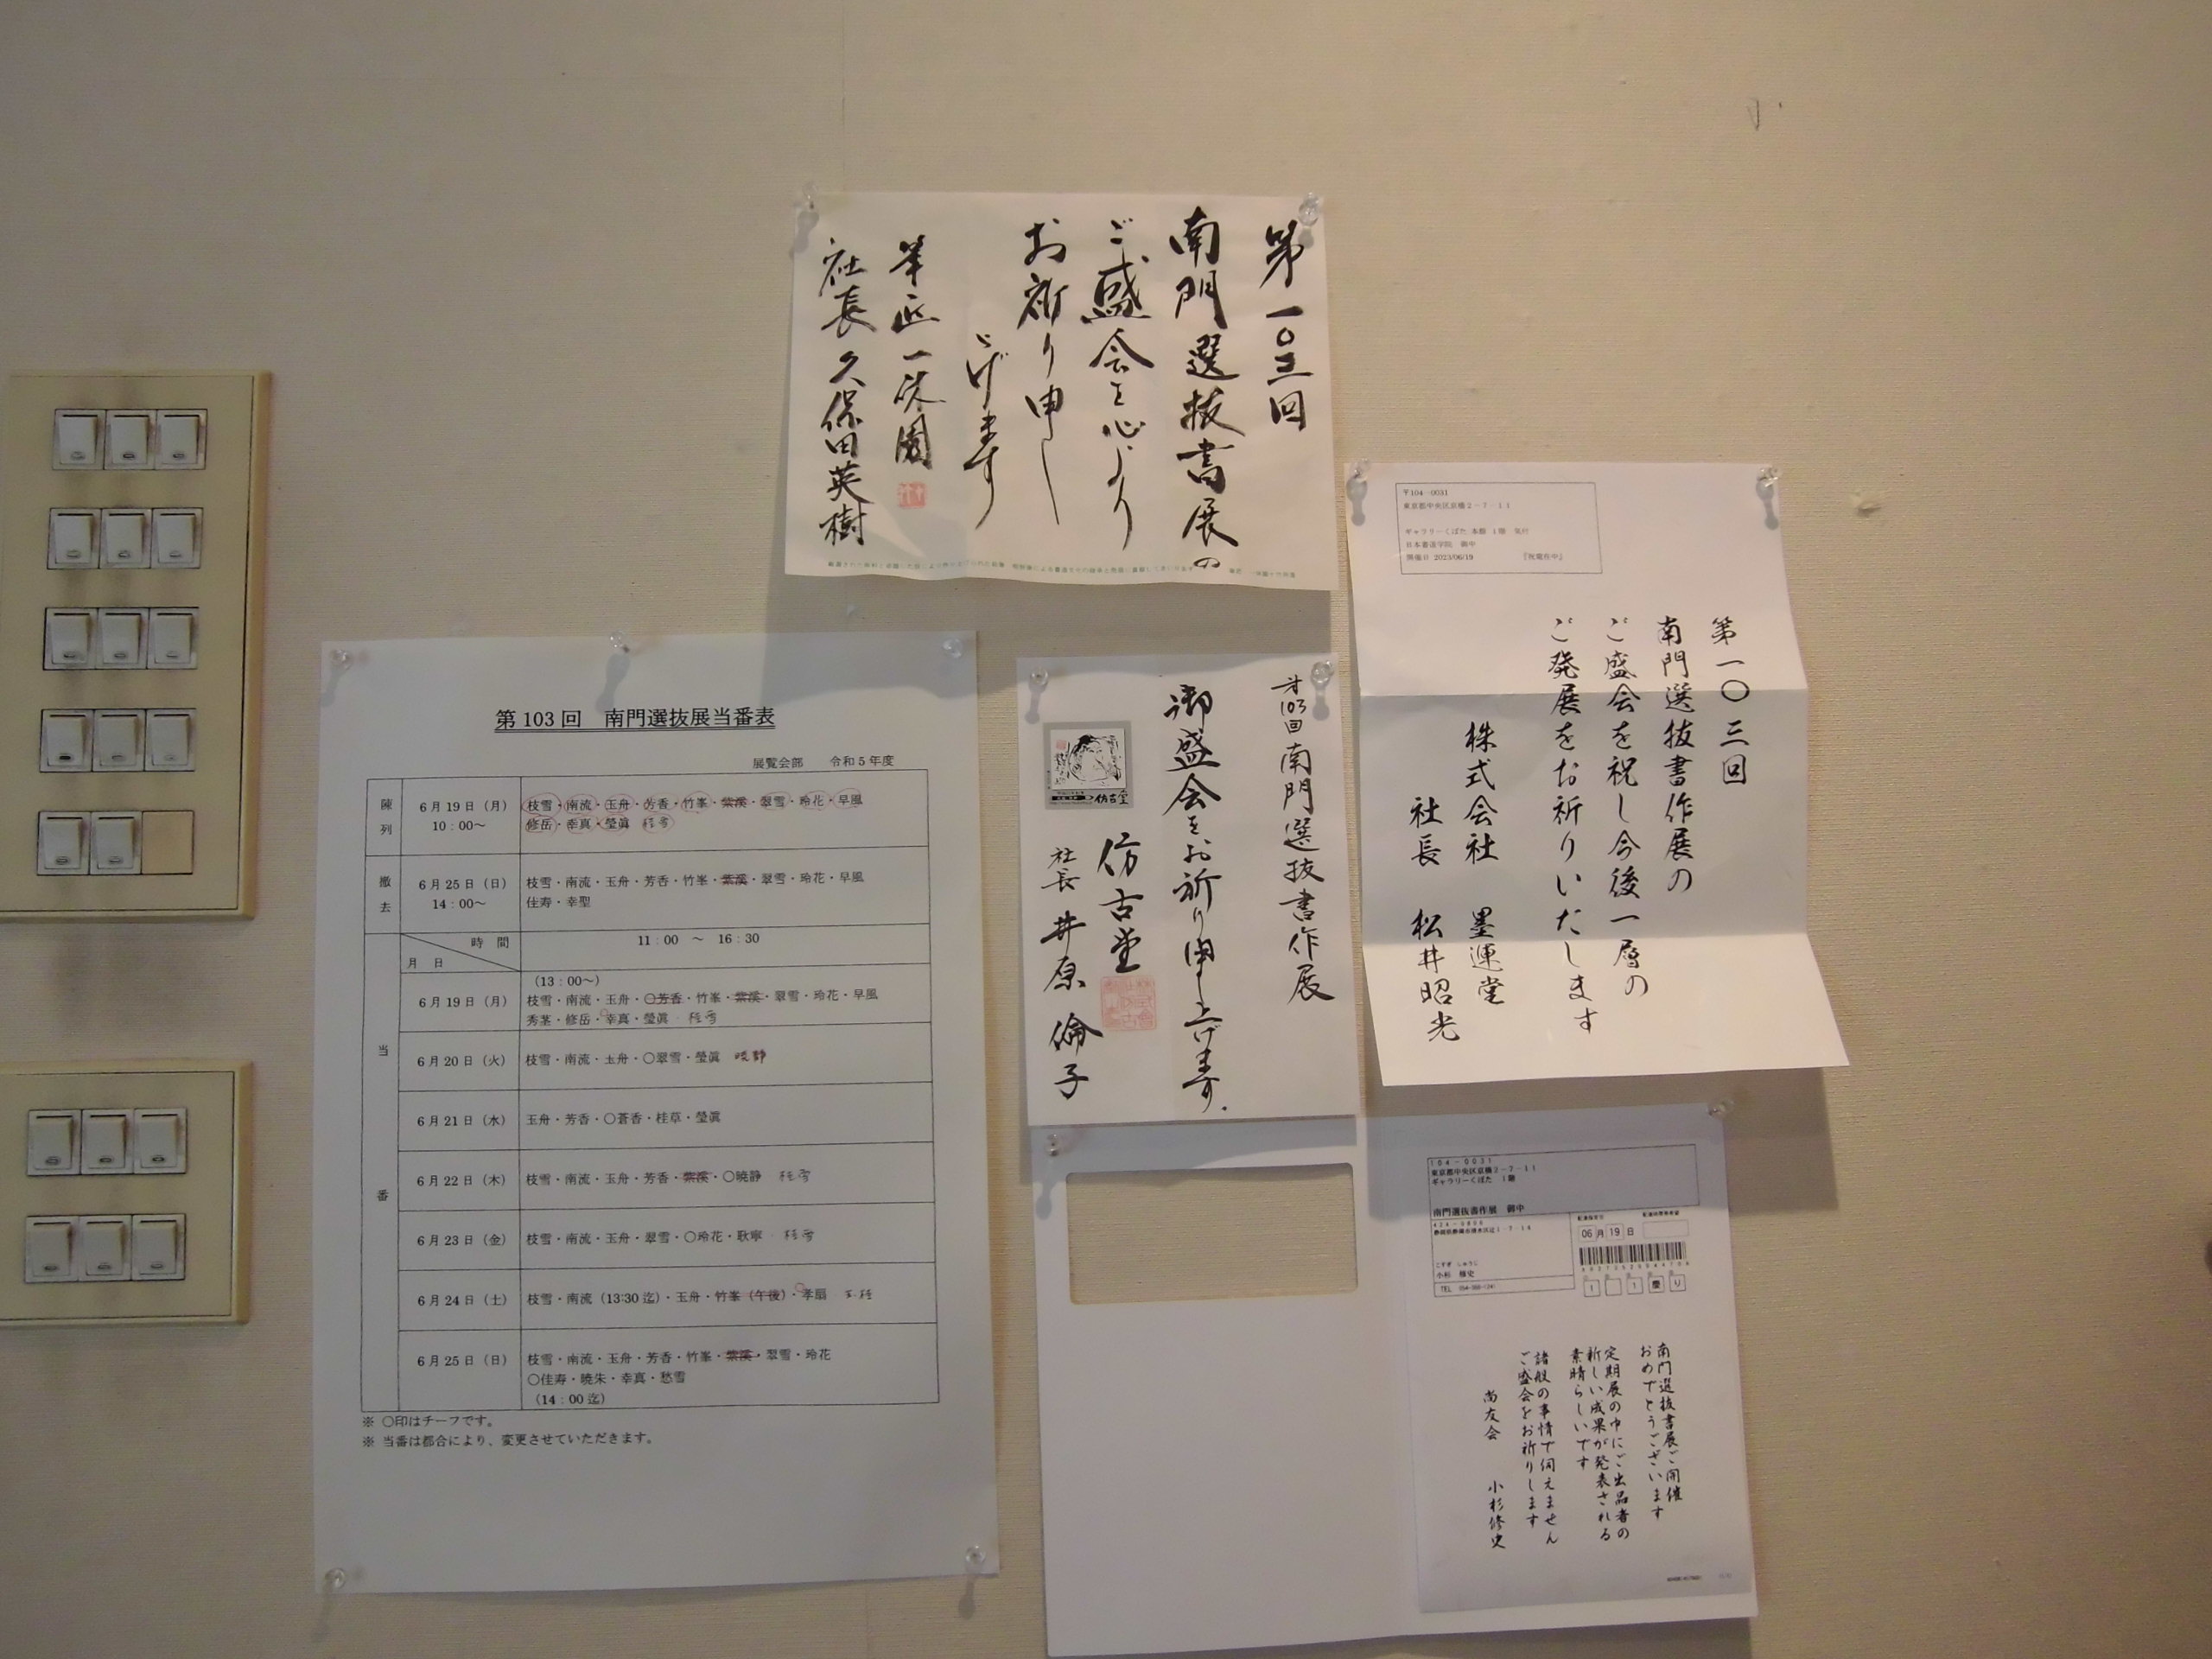 第一〇三回
南門選抜書展の
ご盛会を心より
お祈り申し
上げます
筆匠一休園
社長 久保田英樹
〒104-0031
東京都中央区京橋2-7-11
ギャラリーくぼた 本館 1階 気付
日本書道学院 御中
開催日 2023/06/19 『祝電在中』
第一〇三回
南門選抜書作展の
ご盛会を祝し今後一層の
ご発展をお祈りいたします
株式会社 墨運堂
社長 松井昭光
第103回 南門選抜展当番表
展覧会部 令和5年度
陳列 6月19日(月) 10:00~
枝雪・南流・玉舟・芳香・竹峯・紫溪・翠雪・玲花・早風
修岳・幸真・瑩眞
撤去 6月25日(日) 14:00~
枝雪・南流・玉舟・芳香・竹峯・紫溪・翠雪・玲花・早風
佳寿・幸聖
当番
時間
月日
11:00 ~ 16:30
6月19日(月)
(13:00~)
枝雪・南流・玉舟・〇芳香・竹峯・紫溪・翠雪・玲花・早風
秀茎・修岳・幸真・瑩眞
6月20日(火)
枝雪・南流・玉舟・〇翠雪・瑩眞 暁静
6月21日(水)
玉舟・芳香・〇蒼香・桂草・瑩眞
6月22日(木)
枝雪・南流・玉舟・芳香・紫溪・〇暁静
6月23日(金)
枝雪・南流・玉舟・翠雪・〇玲花・歌寧
6月24日(土)
枝雪・南流(13:30迄)・玉舟・竹峯(午後)・孝扇
6月25日(日)
枝雪・南流・玉舟・芳香・竹峯・紫溪・翠雪・玲花
〇佳寿・暁朱・幸真・愁雪
(14:00迄)
※ 〇印はチーフです。
※ 当番は都合により、変更させていただきます。
第103回 南門選抜書作展
御盛会をお祈り申し上げます.
仿古堂
社長 井原倫子
仿古堂
104-0031
東京都中央区京橋2-7-11
ギャラリーくぼた 1階
南門選抜書作展 御中
小杉 修史
06月19日
南門選抜書展ご開催
おめでとうございます
定期展の中にご出品者の
新しい成果が発表される
素晴らしいです
諸般の事情で伺えません
ご盛会をお祈りします
尚友会 小杉修史